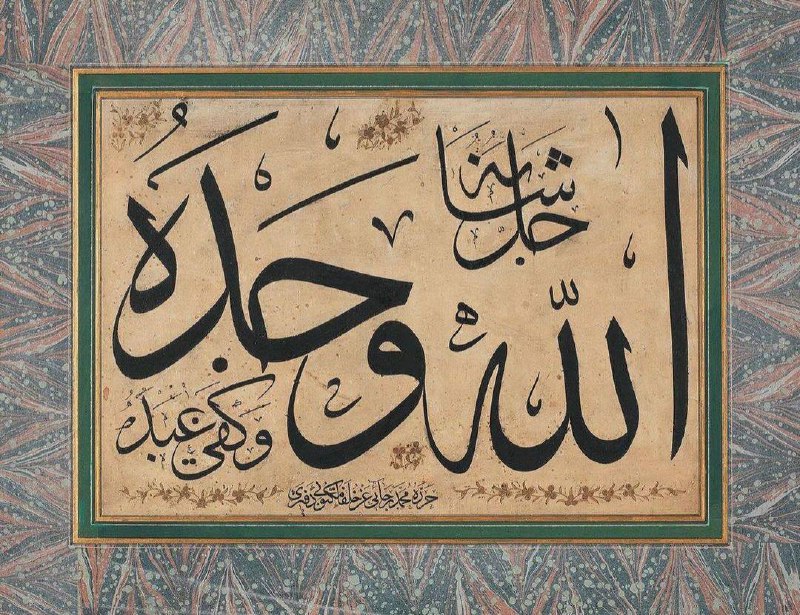 الله
جل شانه
وحده
وكفى عبده
حرره محمد رجائي